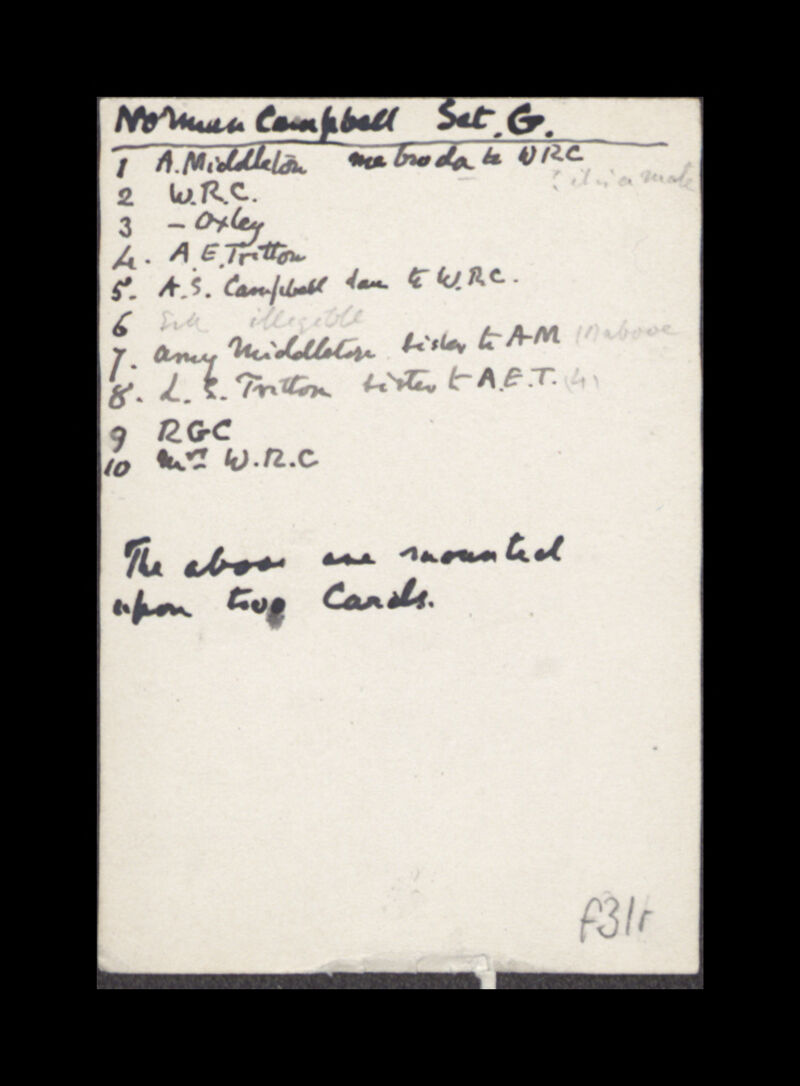 Norman Campbell Set. G.
1 A. Middleton to WRC
? it is a male
2 W.R.C.
3 - Oxley
4. A.E. Tritton
5. A.S. Campbell to W.R.C.
6 illegible
7. Amy Middleton sister to AM (1) above
8. L. S. Tritton sister to A.E.T. (4)
9 RGC
10 Mrs W.R.C
The above are mounted
upon two Cards.
f31r